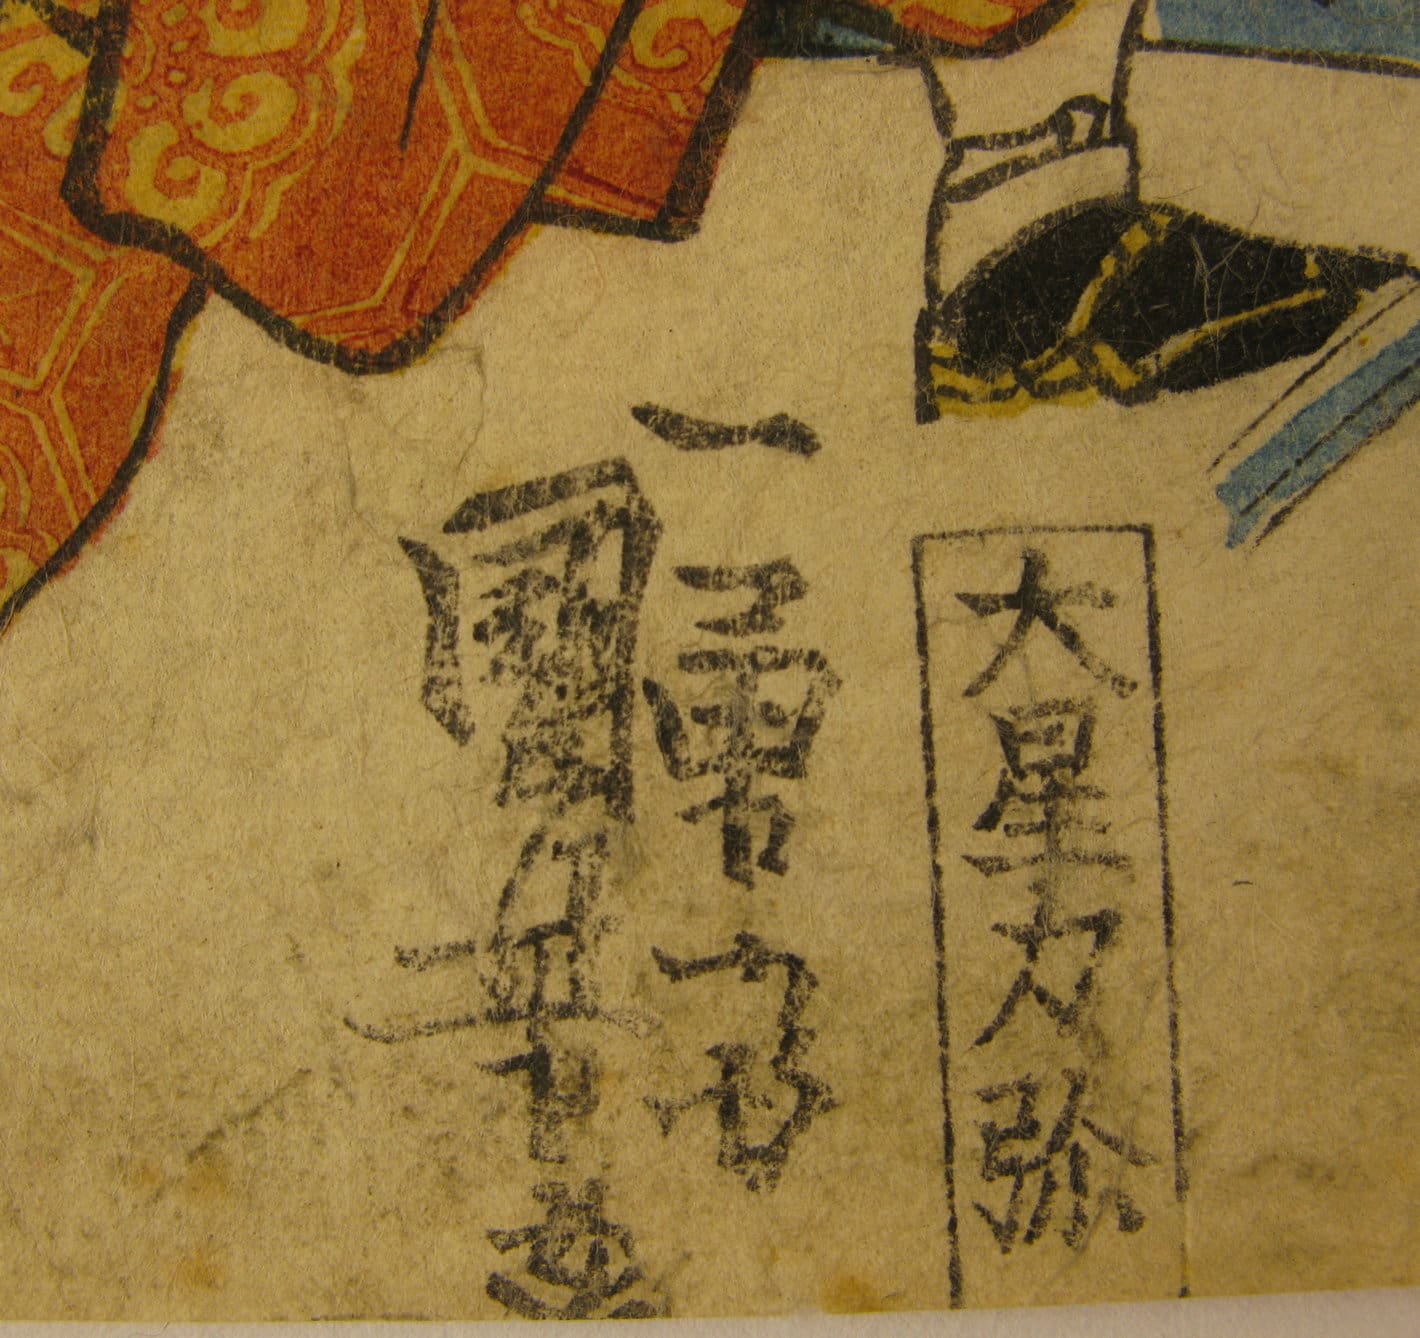 大星力弥
一勇齋
國芳画